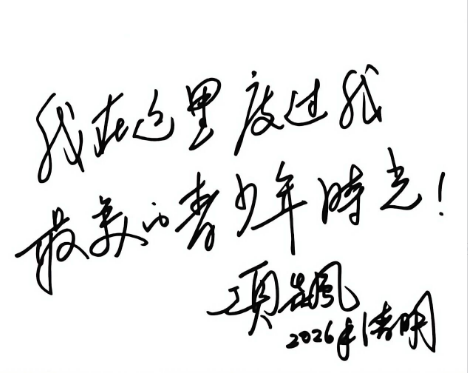 我在这里度过我
最美的青少年時光！
项飙
2026年清明